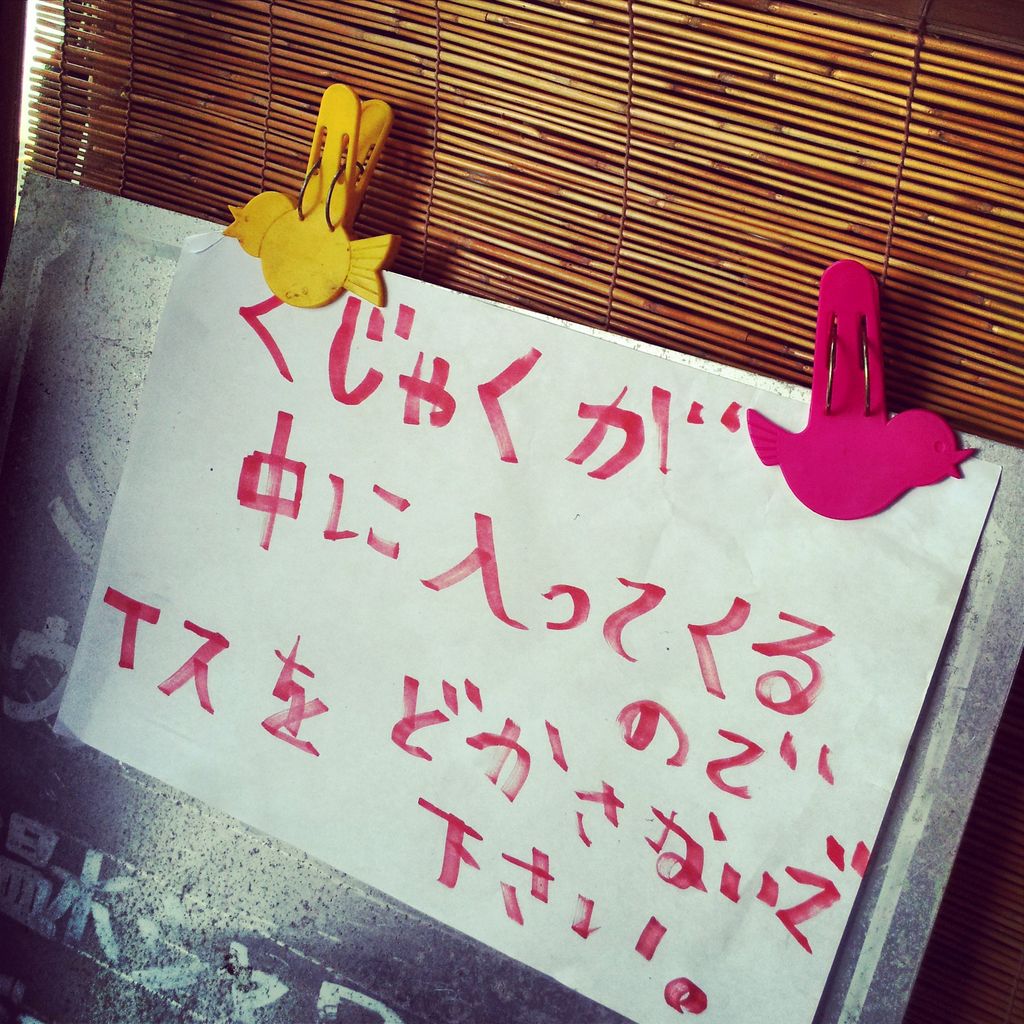 くじゃくが
中に入ってくる
ので
イスをどかさないで
下さい。